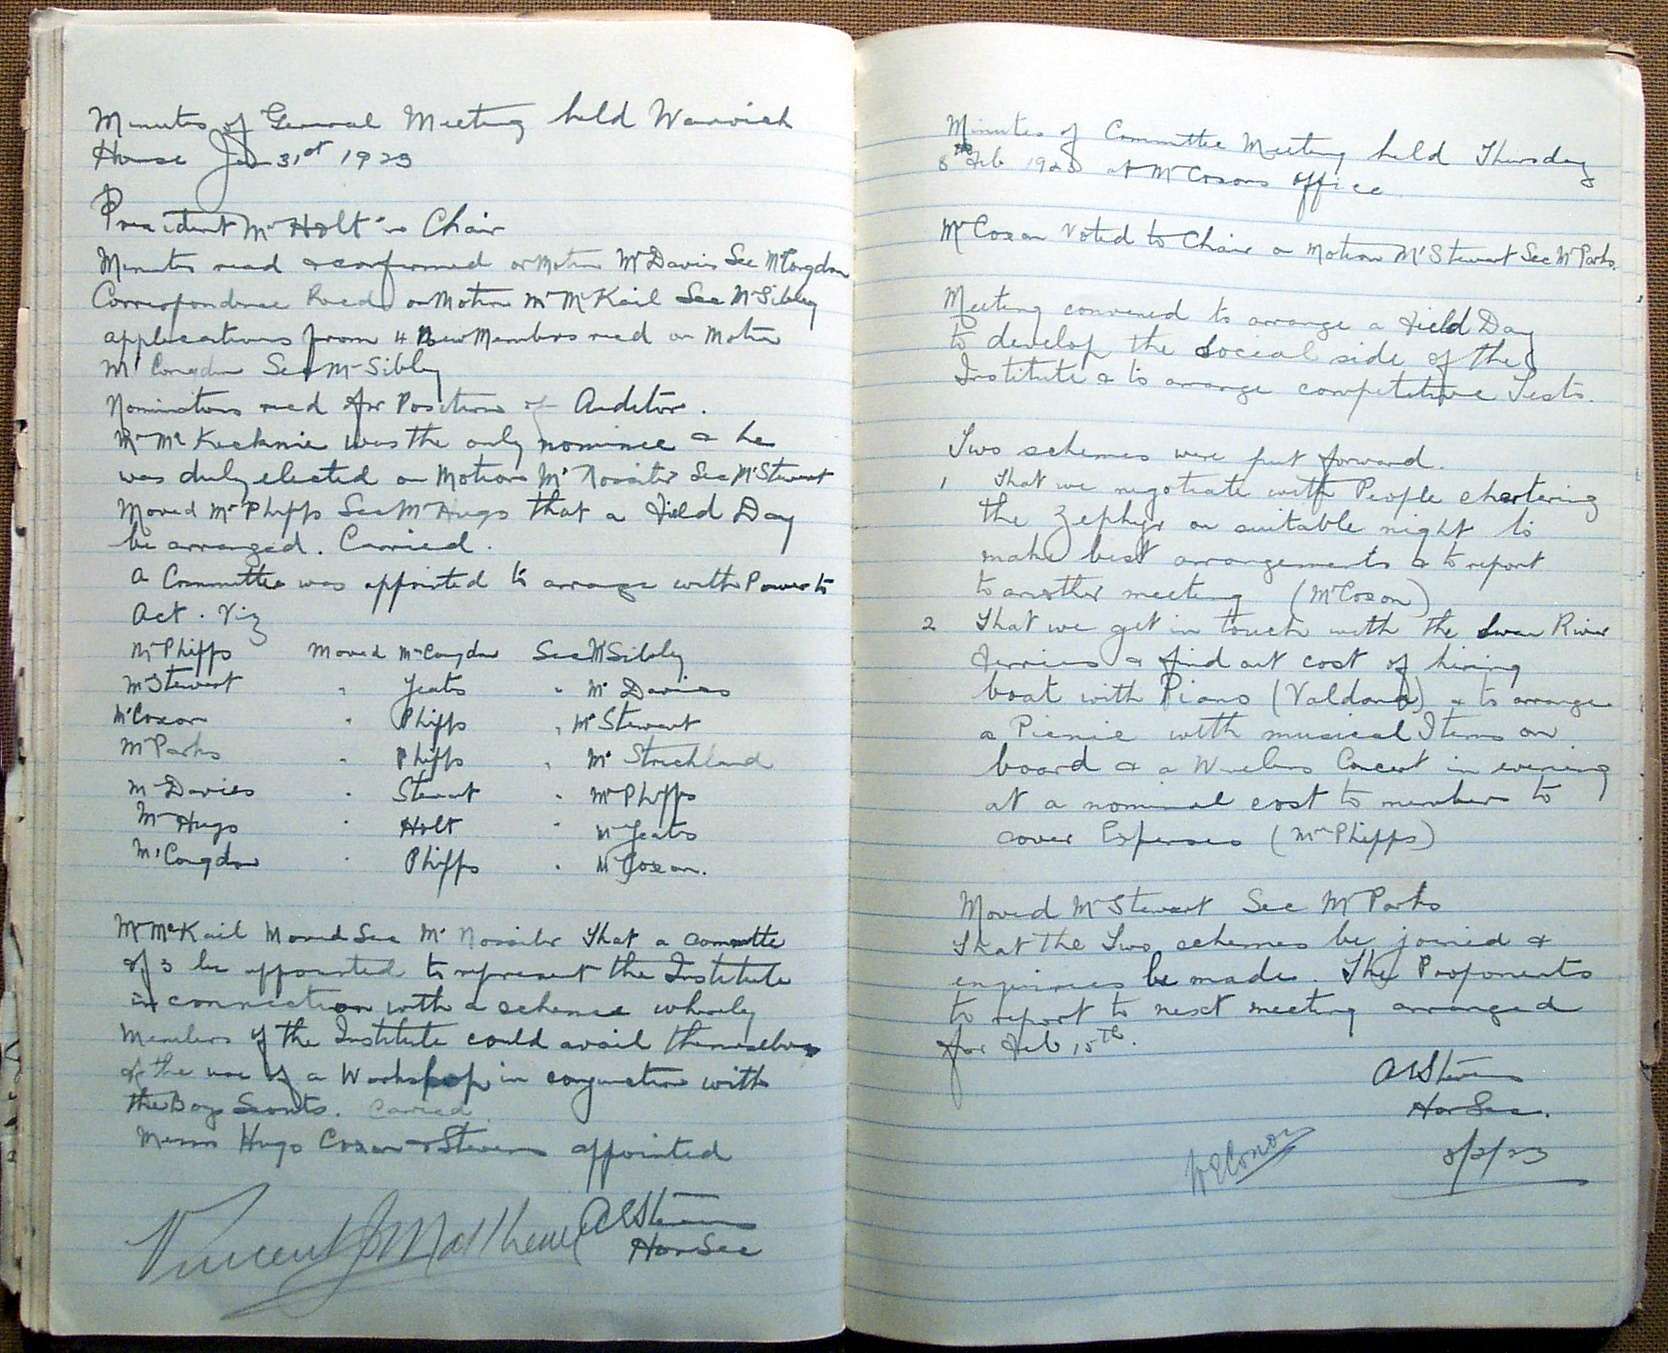 Minutes of General Meeting held Warwick
House Jan 31st 1923
President Mr Holt in Chair
Minutes read & confirmed on Motion Mr Davis Sec Mr Congdon
Correspondence Read on Motion Mr McKail Sec Mr Sibley
applications from 4 New Members read on Motion
Mr Congdon Sec Mr Sibley
Nominations read for Position of Auditor.
Mr McKecknie was the only nominee & he
was duly elected on Motion Mr Rossiter Sec Mr Stewart
Moved Mr Phipps Sec Mr Hugo that a Field Day
be arranged. Carried.
A Committee was appointed to arrange with Power to
Act. Viz
Mr Phipps Moved Mr Congdon Sec Mr Sibley
Mr Stewart " Yeats " Mr Davies
Mr Coxon " Phipps " Mr Stewart
Mr Parks " Phipps " Mr Strickland
Mr Davies " Stewart " Mr Phipps
Mr Hugo " Holt " Mr Yeats
Mr Congdon " Phipps " Mr Coxon.
Mr McKail Moved Sec Mr Rossiter That a committe
of 3 be appointed to represent the Institute
in connection with a scheme whereby
Members of the Institute could avail themselves
of the use of a Workshop in conjunction with
the Boy Scouts. Carried
Messrs Hugo Coxon & Stevens appointed
Vincent J Matthews
A E Stevens
Hon Sec
Minutes of Committee Meeting held Thursday
8th Feb 1923 at Mr Coxons office
Mr Coxon Voted to Chair on Motion Mr Stewart Sec Mr Parks.
Meeting convened to arrange a Field Day
to develop the social side of the
Institute & to arrange competitive Tests.
Two schemes were put forward.
1 That we negotiate with People chartering
the Zephyr on suitable night to
make best arrangements & to report
to another meeting (Mr Coxon)
2 That we get in touch with the Swan River
Ferries & find out cost of hiring
boat with Piano (Valdana) & to arrange
a Picnic with musical Items on
board & a Wireless Concert in evening
at a nominal cost to members to
cover Expenses (Mr Phipps)
Moved Mr Stewart Sec Mr Parks
That the Two schemes be joined &
enquiries be made. The Proponents
to report to next meeting arranged
for Feb 15th.
A E Stevens
Hon Sec.
8/2/23